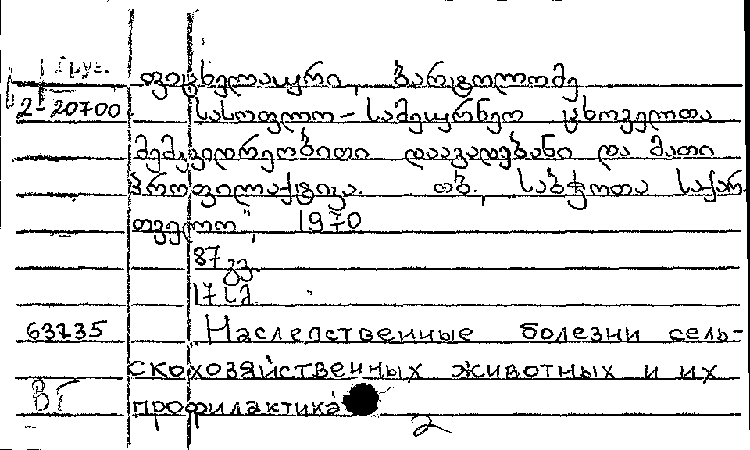 Груз.
ფიცხელაური, ბარტოლომე
2-20700 სასოფლო-სამეურნეო ცხოველთა
მემკვიდრეობითი დაავადებანი და მათი
პროფილაქტიკა. თბ., „საბჭოთა საქარ-
თველო", 1970
87 გვ.
17 სმ
63735 Наследственные болезни сель-
скохозяйственных животных и их
ВГ профилактика
2